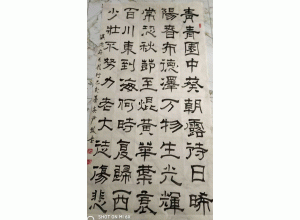 青青園中葵朝露待日晞
陽春布德澤万物生光輝
常恐秋節至焜黃華葉衰
百川東到海何時復歸西
少壯不努力老大徒傷悲
SHOT ON MI